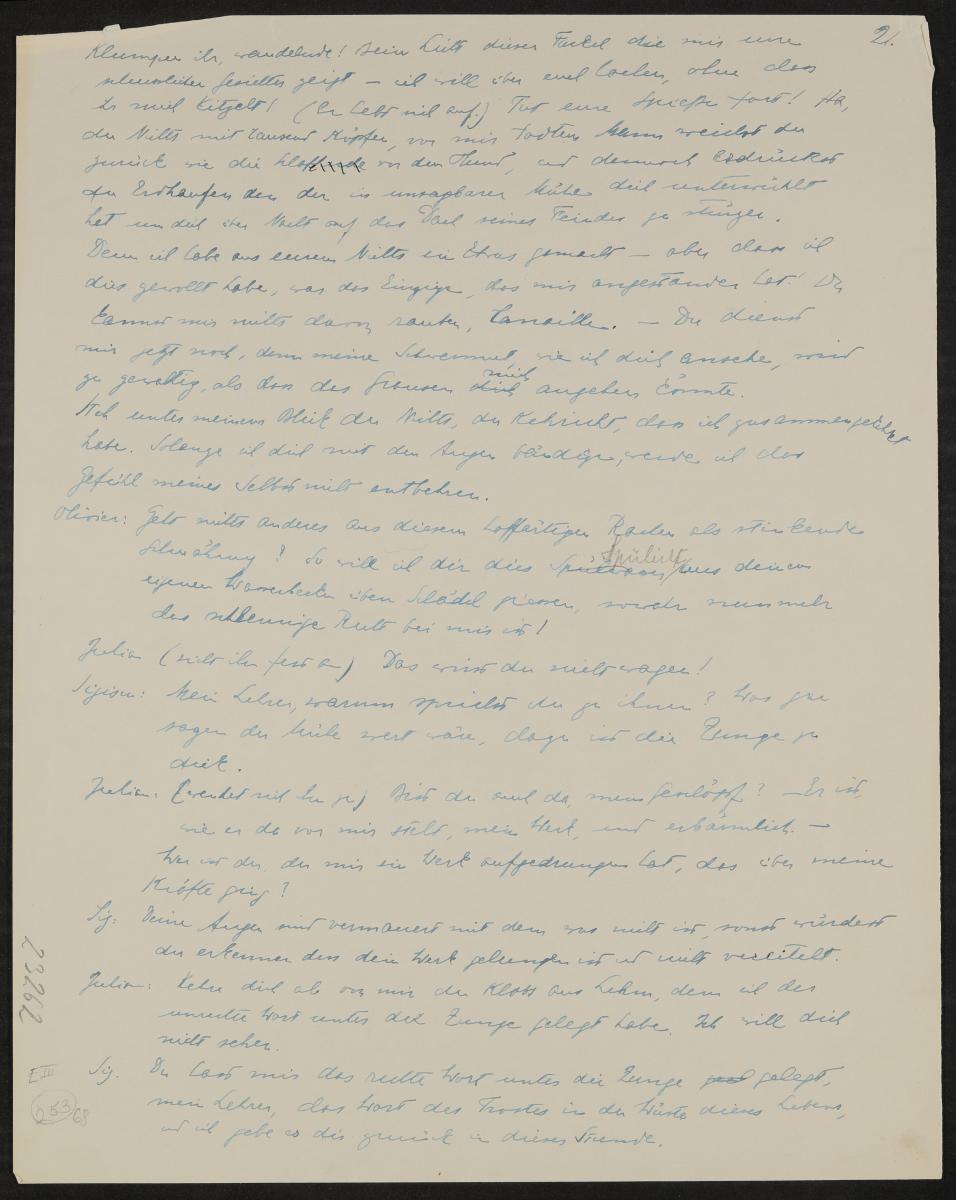 21.
Klumpen ihr, wandelnde! Beim Licht dieser Fackel die mir eure
scheusslichen Gesichter zeigt – ich will über euch lachen, ohne dass
ihr mich kitzelt! (Er hebt sich auf.) Tut eure Spiesse fort! Ha,
du Nichts mit tausend Köpfen, vor mir todtem Mann weichst du
zurück wie die vor dem Hund, und dennoch erdrückst
du Erdhaufen den der in unsagbarer Mühe dich unterwühlt
hat um dich über Nacht auf das Dach seines Feindes zu stürzen.
Denn ich habe aus eurem Nichts ein Etwas gemacht – aber dass ich
dies gewollt habe, war das Einzige, das mir angestanden hat! Du
kannst mir nichts davon rauben, Canaille. – Du dienst
mir jetzt noch, denn meine Schwermut, wie ich dich ansehe, wird
zu gewaltig, als dass das Grausen mich angehen könnte.
Ach unter meinem Blick du Nichts, du Kehricht, dass ich zusammengekehrt
habe. Solange ich dich mit den Augen bändige, werde ich das
Gefühl meines Selbst nicht entbehren.
Olivier: Geht nichts anderes aus diesem hoffärtigen Rachen als stinkende
Schmähung? So will ich dir dies Spülicht aus deinem
eigenen Wasserbecken übern Schädel giessen, sowahr nunmehr
das alleinige Recht bei mir ist!
Julian (sieht ihn fest an) Das wirst du nicht wagen!
Sigism: Mein Lehrer, warum sprichst du zu ihnen? Was zu
sagen der Mühe wert wäre, dazu ist die Zunge zu
dick.
Julian: (wendet sich ihm zu) Bist du auch da, mein Geschöpf? – Er ist,
wie er da vor mir steht, mein Werk, und erbärmlich. –
Wer ist der, der mir ein Werk aufgedrungen hat, das über meine
Kräfte ging?
Sig: Deine Augen sind vermauert mit dem was nicht ist, sonst würdest
du erkennen dass dein Werk gelungen ist und nicht vereitelt.
Julian: Kehre dich ab von mir du Kloss aus Lehm, dem ich das
unrechte Wort unter die Zunge gelegt habe. Ich will dich
nicht sehen.
Sig. Du hast mir das rechte Wort unter die Zunge gelegt,
mein Lehrer, das Wort des Trostes in der Wüste dieses Lebens,
und ich gebe es dir zurück in dieser Stunde.
23262
E III
253
68